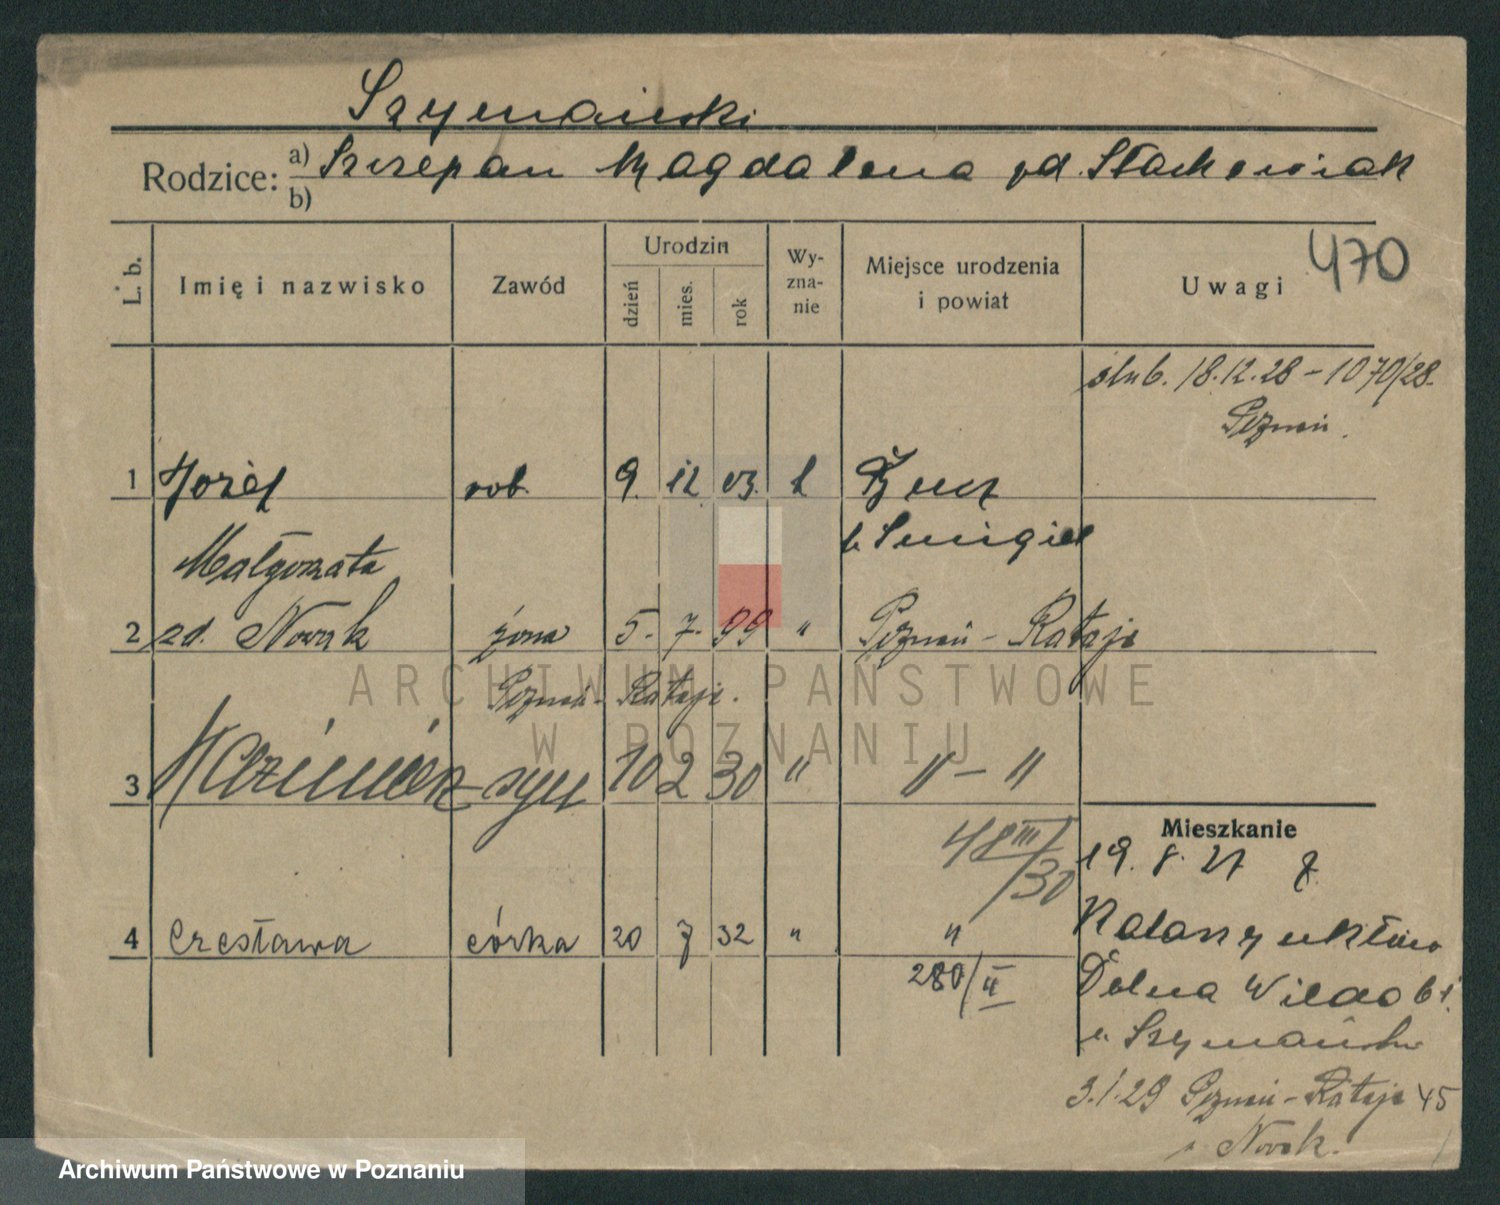 Szymański
Rodzice: a) Szczepan Magdalena zd. Stachowiak
b)
L. b. Imię i nazwisko Zawód Urodzin dzień mies. rok Wy-zna-nie Miejsce urodzenia i powiat Uwagi 470
ślub. 18.12.28 – 1070/28.
Poznań.
1 Józef rob. 9. 12 03.
p. Śmigiel
Małgorzata
2 zd. Nowak żona 5. 7. 99 " Poznań – Rataje
Poznań – Rataje.
ARCHIWUM PAŃSTWOWE
W POZNANIU
3 Kazimierz syn 10 2 30 " " – "
48 III/30
Mieszkanie
19. 8. 27 z
4 Czesława córka 20 7 32 " "
280/II
Dolna Wilda 61
u Szymański
3.1.29 Poznań – Rataje 45
Nowak.
Archiwum Państwowe w Poznaniu